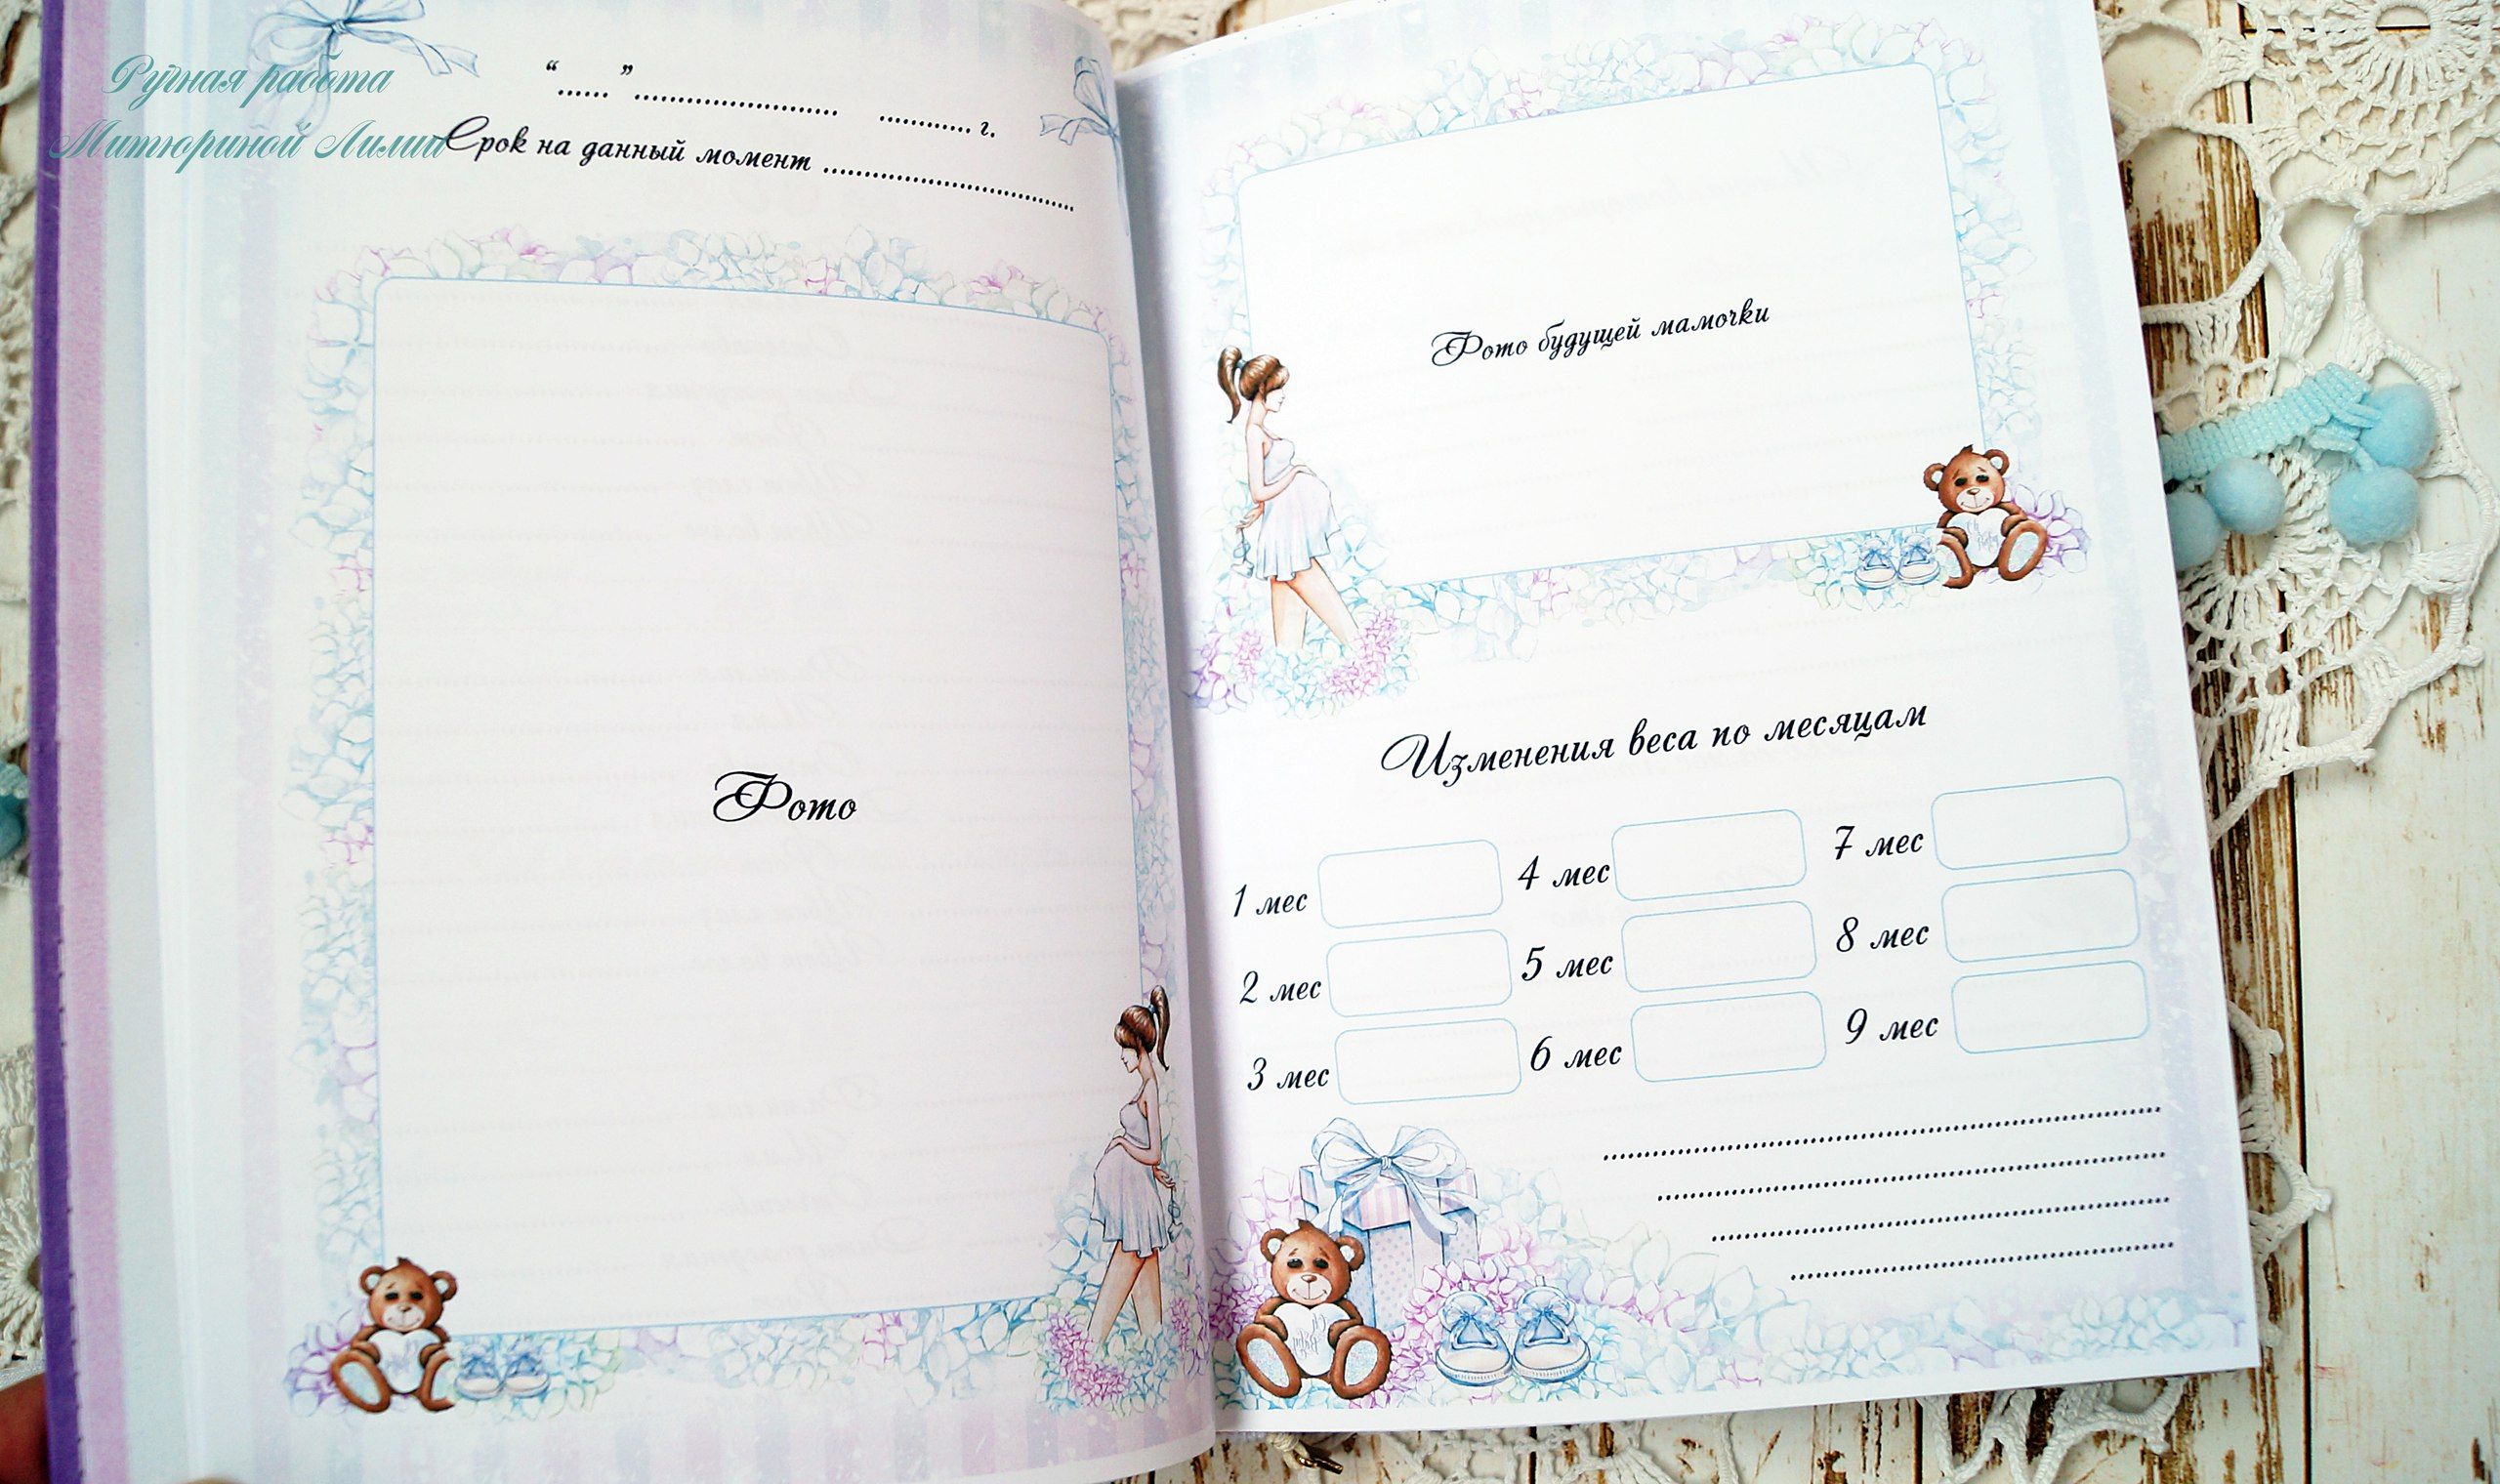 Ручная работа
Митюриной Лилии
“......” ........................ ............ г.
Срок на данный момент ..............................
Фото
Фото будущей мамочки
Изменения веса по месяцам
1 мес 4 мес 7 мес
2 мес 5 мес 8 мес
3 мес 6 мес 9 мес